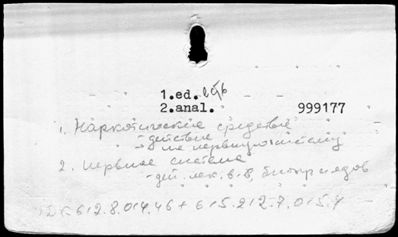 1.ed.
2.anal. 999177
1. Наркотические средства
- действие
- на нервную систему
2. Нервная система
- дей. лек. в-в,
612.8.014.46+615.212.7.015.4